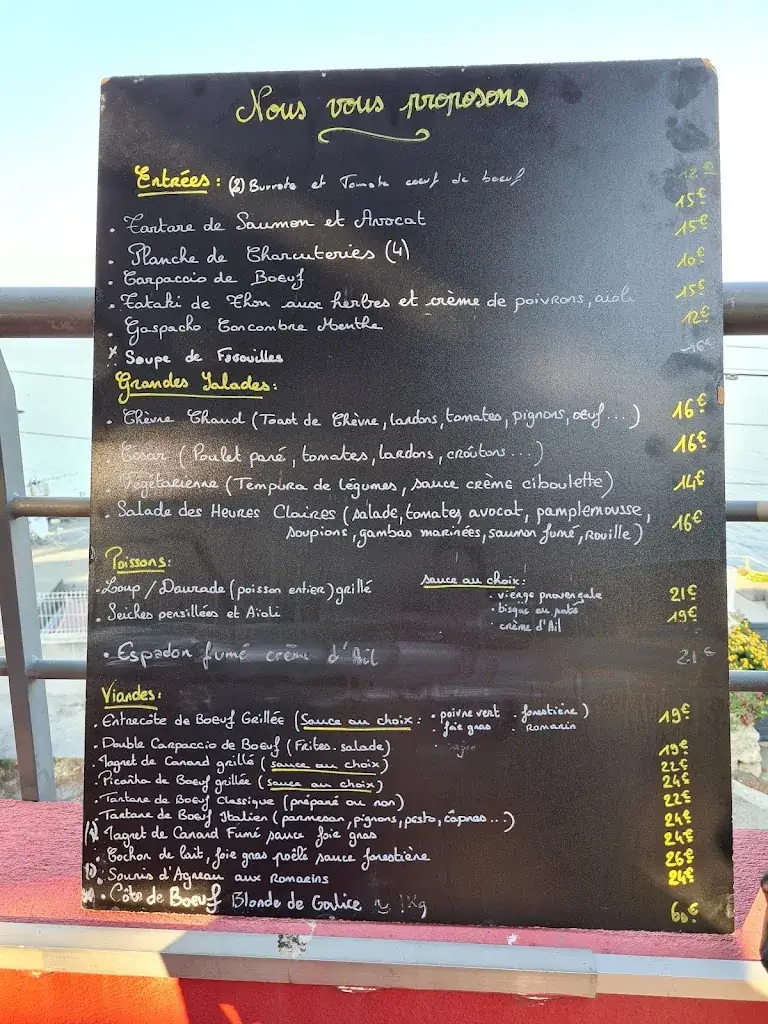 Nous vous proposons
Entrées : (2) Burrata et Tomate coeuf de boeuf 18€
15€
. Tartare de Saumon et Avocat 15€
. Planche de Charcuteries (4)
. Carpaccio de Boeuf 10€
. Tataki de Thon aux herbes et crème de poivrons, aioli 15€
. Gaspacho Concombre Menthe 12€
Soupe de Favouilles 16€
Grandes Salades :
. Chèvre Chaud (Toast de Chèvre, lardons, tomates, pignons, oeuf...) 16€
. César (Poulet pané, tomates, lardons, croûtons...) 16€
. Végétarienne (Tempura de légumes, sauce crème ciboulette) 14€
. Salade des Heures Claires (salade, tomates, avocat, pamplemousse, 16€
soupions, gambas marinées, saumon fumé, rouille)
Poissons :
. Loup / Daurade (poisson entier) grillé 21€
. Seiches persillées et Aïoli 19€
sauce au choix :
. vierge provençale
. bisque au
. crème d'Ail
. Espadon fumé crème d'Ail 21€
Viandes :
. Entrecôte de Boeuf Grillée (Sauce au choix : . poivre vert . forestière) 19€
. foie gras . romarin
. Double Carpaccio de Boeuf (Frites. salade) 19€
. Magret de Canard grillé (sauce au choix) 22€
. Picanha de Boeuf grillée (sauce au choix) 24€
. Tartare de Boeuf Classique (préparé ou non) 22€
. Tartare de Boeuf Italien (parmesan, pignons, pesto, câpres...) 24€
. Magret de Canard Fumé sauce foie gras 24€
. Cochon de lait, foie gras poêlé sauce forestière 26€
. Souris d'Agneau aux Romarins 24€
. Côte de Boeuf Blonde de Galice ~ 1Kg 60€